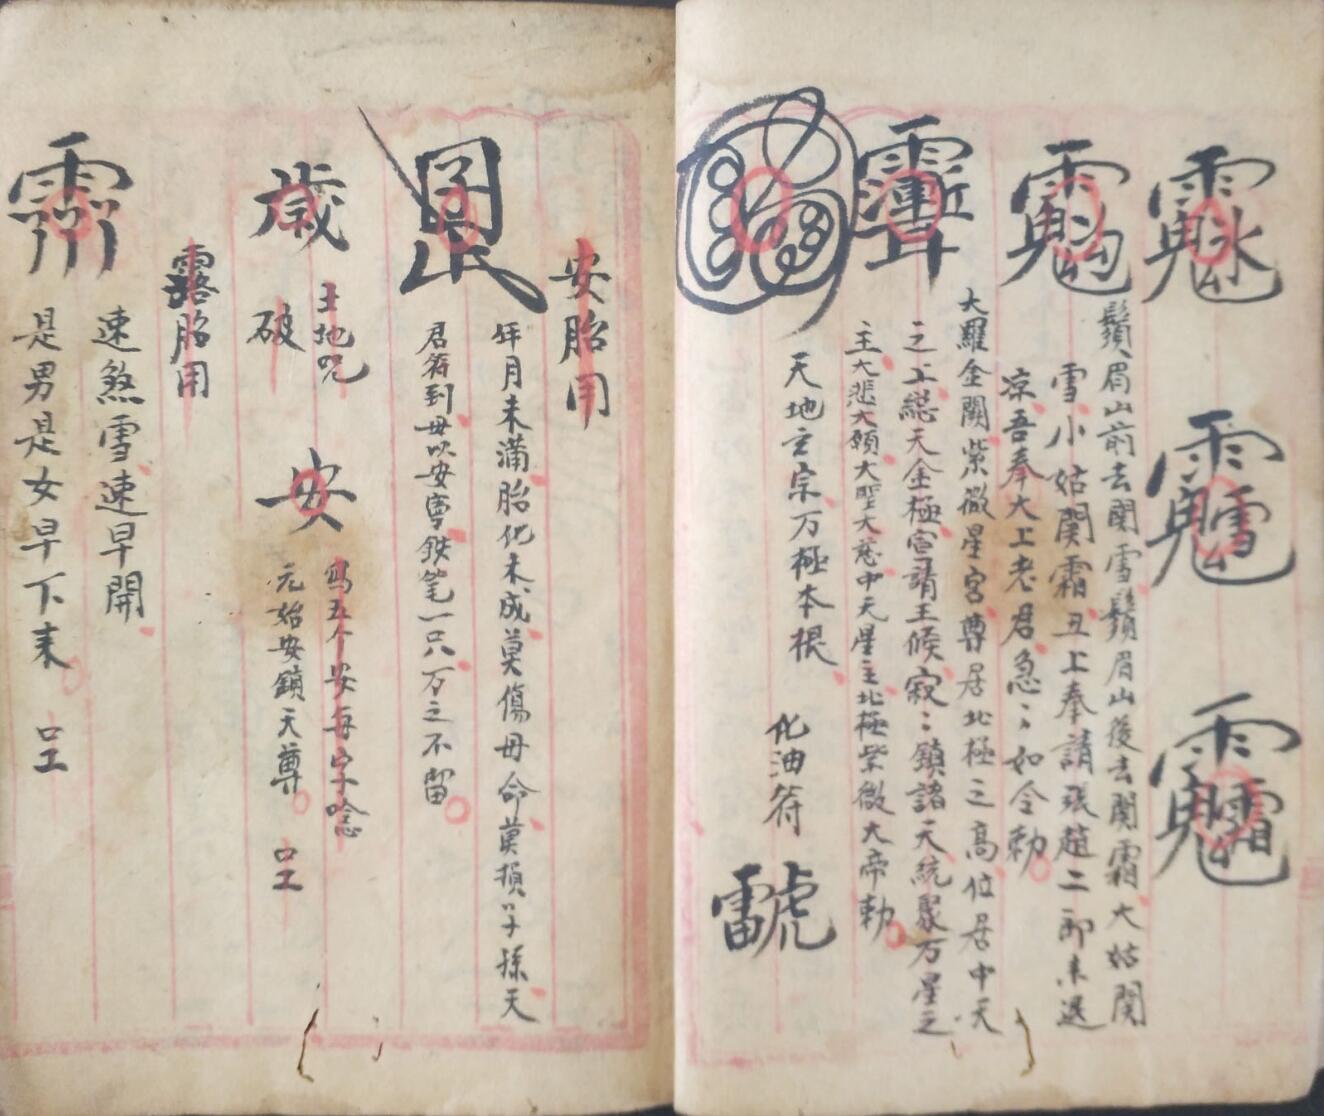 鬚眉山前去関雪鬚眉山後去関霜大姑関
雪小姑関霜丑上奉請張趙二郎來退
凉吾奉大上老君急〻如令勅
大羅金闕紫微星宮尊居北極之高位居中天
之上総天金極宣請王候寂〻鎮諸天統聚万星之
主大悲大願大聖大慈中天星主北極紫微大帝勅
天地玄宗万極本根
化油符
安胎用
年月未滿胎化未成莫傷母命莫損子孫天
君符到母以安寧鉄笔一只万之不留
歳破
土地咒
安
寫五个安每字唸
元始安鎮天尊
胎用
速煞雪速早開
是男是女早下来